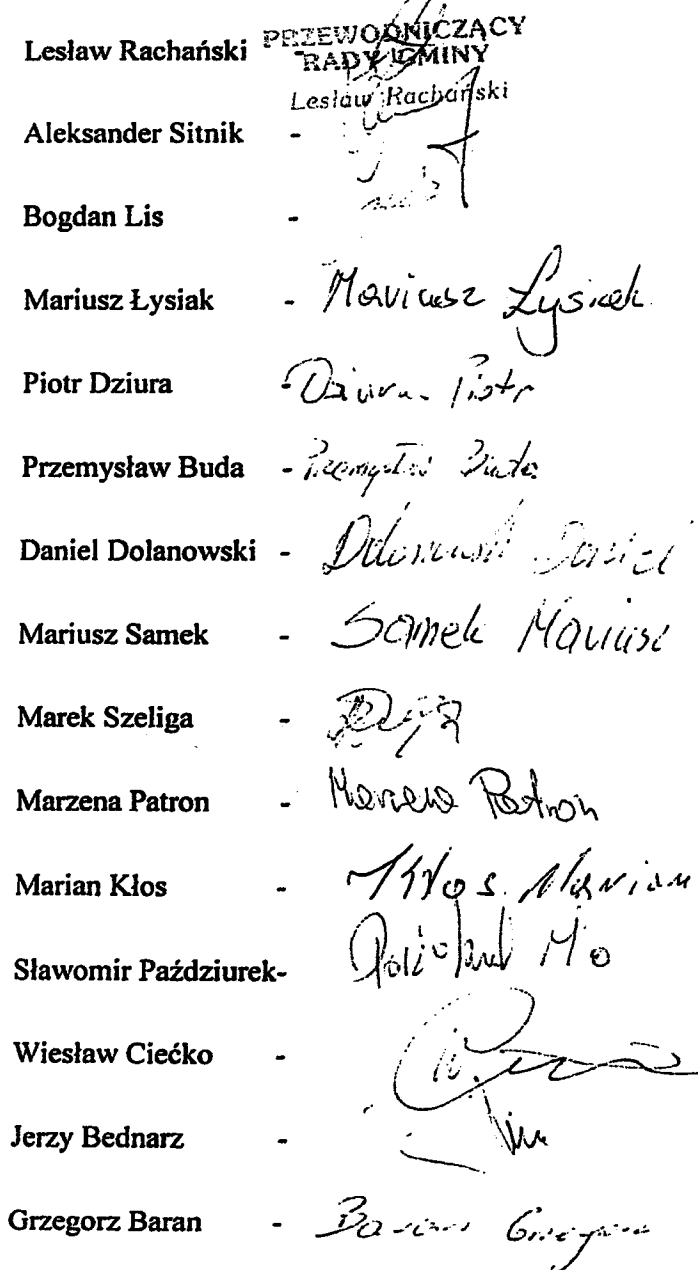 Lesław Rachański PRZEWODNICZĄCY
RADY GMINY
Lesław Rachański
Aleksander Sitnik -
Bogdan Lis -
Mariusz Łysiak - Mariusz Łysiak
Piotr Dziura - Dziura Piotr
Przemysław Buda - Przemysław Buda
Daniel Dolanowski - Dolanowski Daniel
Mariusz Samek - Samek Mariusz
Marek Szeliga -
Marzena Patron - Marzena Patron
Marian Kłos - Kłos Marian
Sławomir Paździurek-
Wiesław Ciećko -
Jerzy Bednarz -
Grzegorz Baran - Baran Grzegorz